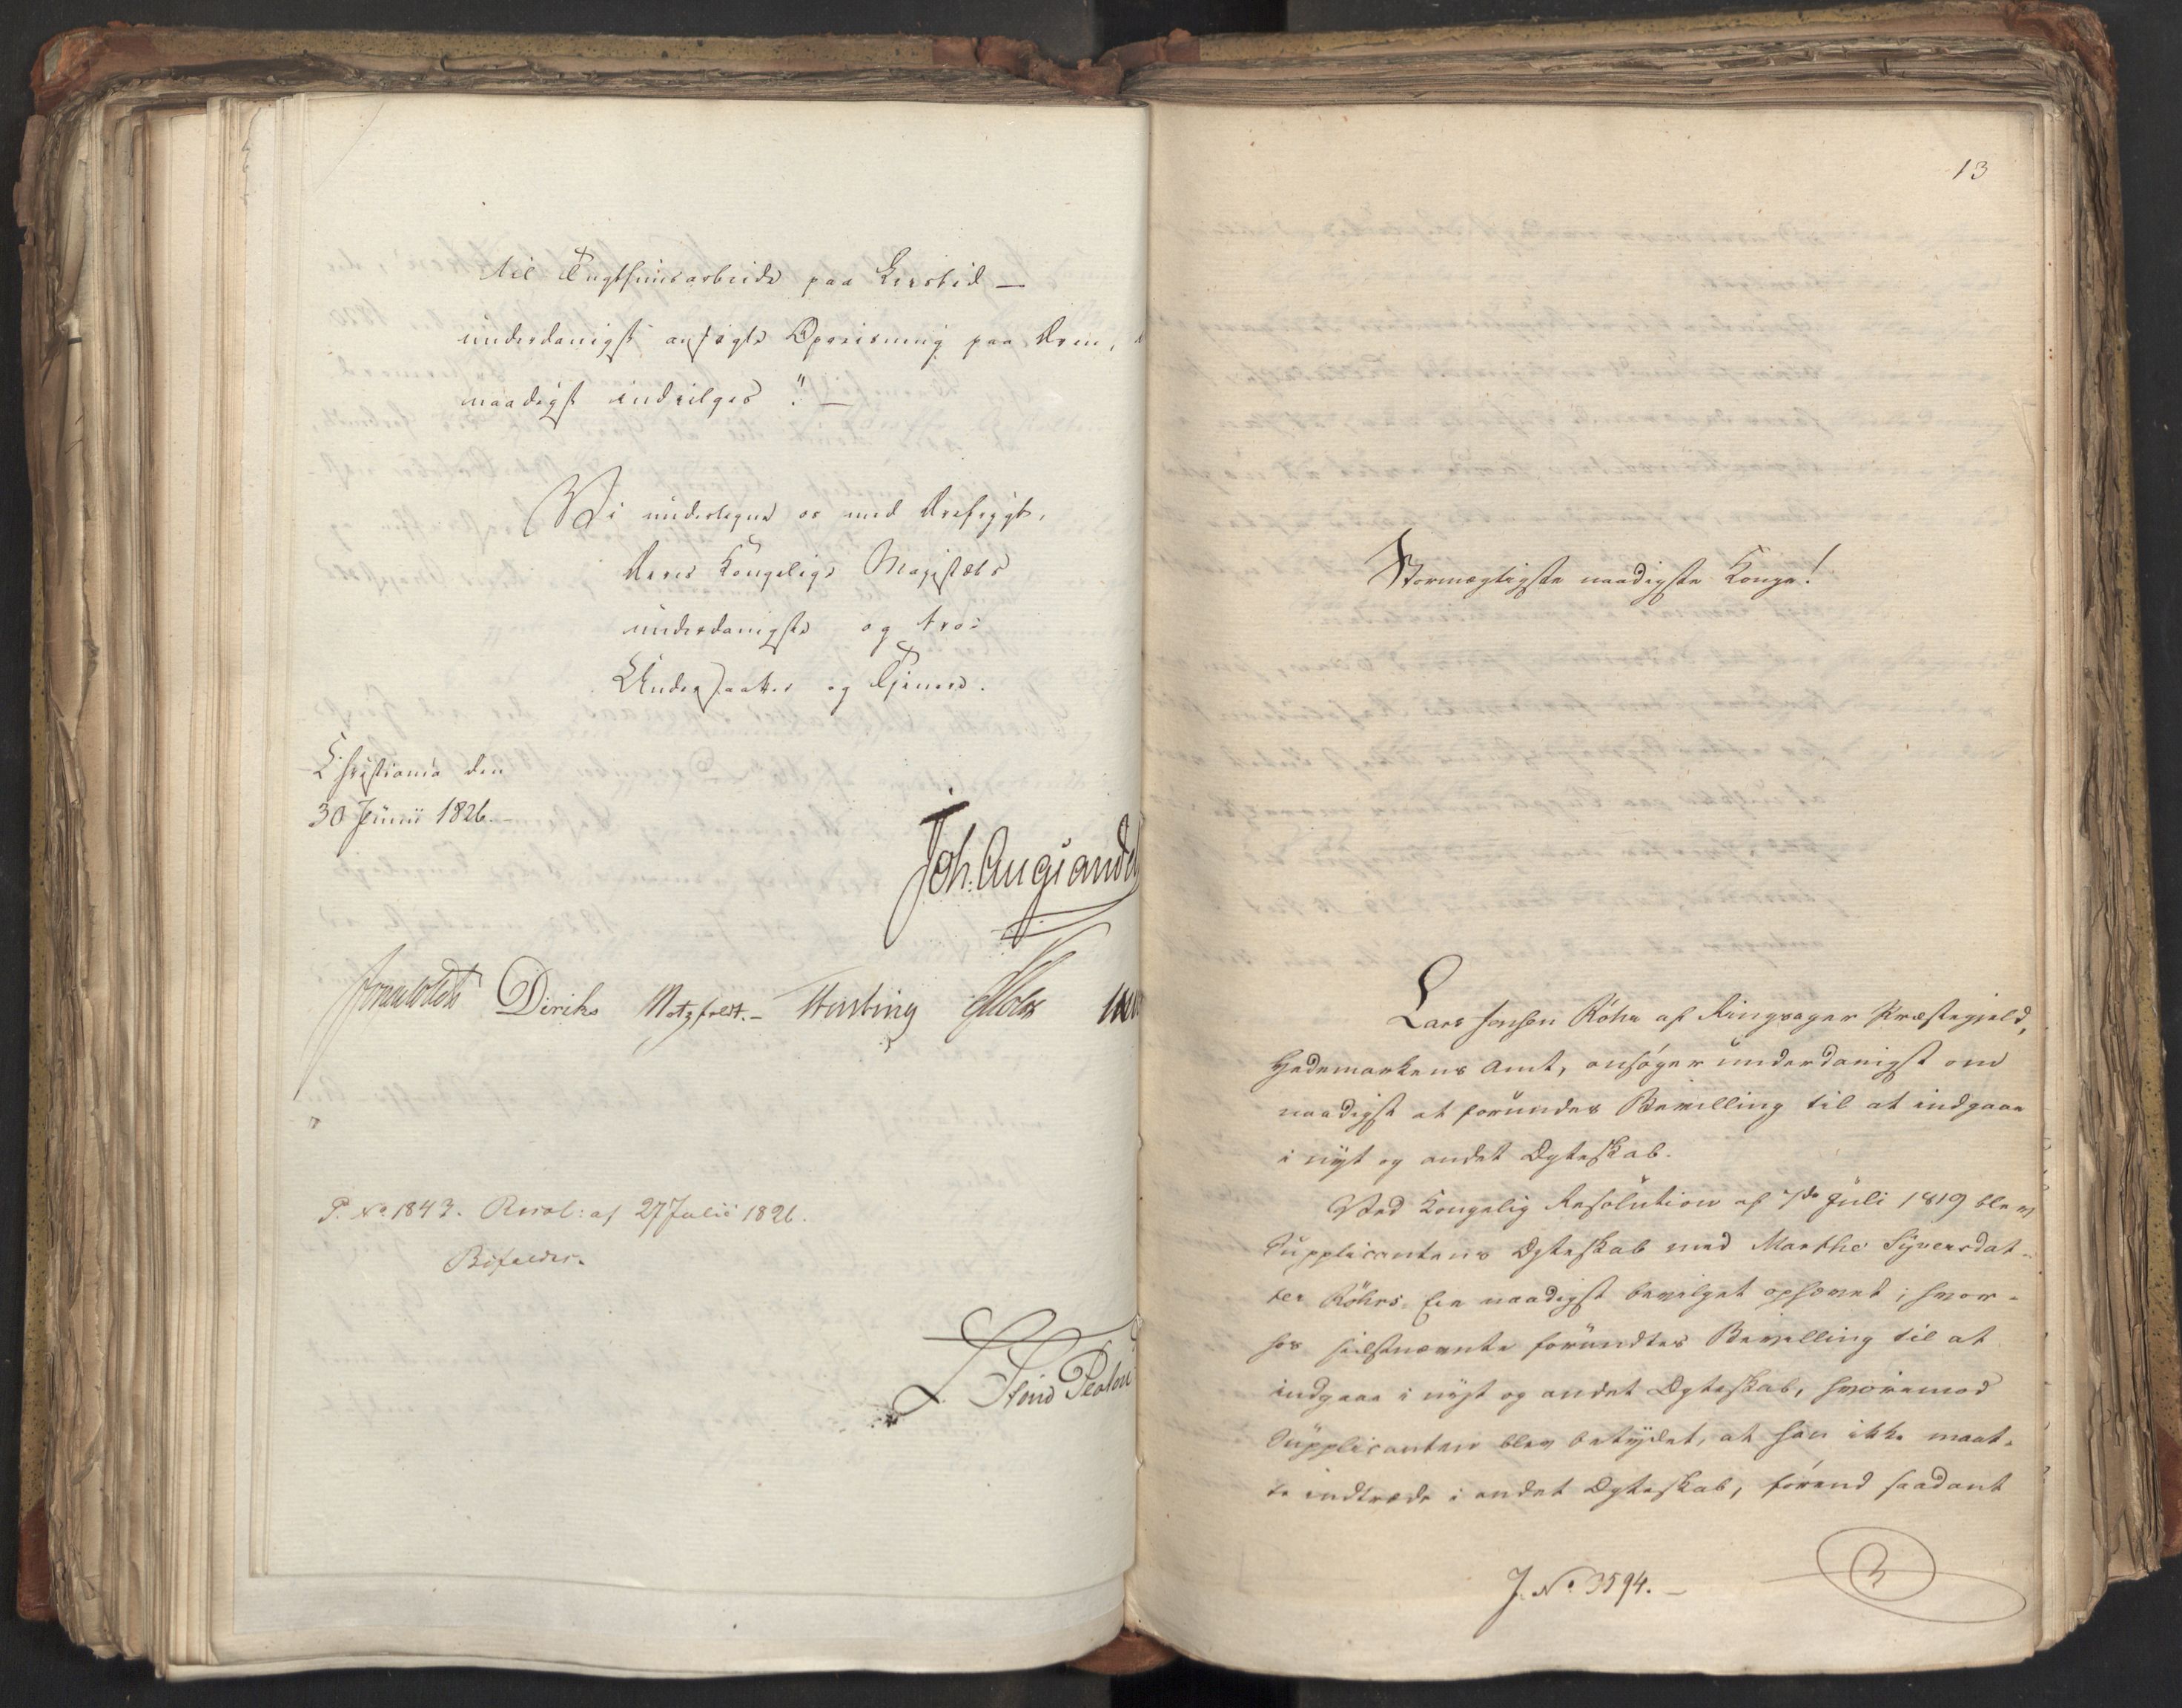 til Tugthuusarbeide paa Livstid —
underdanigst ansøgte Opreisning paa Æren,
naadigst indvilges". —
Vi undertegne os med Ærefrygt,
Deres Kongelige Majestæts
underdanigste og troe
Undersaatter og Tjenere.
Christiania den
30 Junii 1826.
Joh. Aug: Sandel
Diriks Motzfeldt. – Holst
P. No 1843. Resol: af 27 Julii 1826.
Bifaldes.
13
Stormægtigste naadigste Konge!
Lars Jensen Röhn af Ringsager Præstegjeld,
Hedemarkens Amt, ansöger underdanigst om
naadigst at forundes Bevilling til at indgaae
i nyt og andet Ægteskab.
Ved Kongelig Resolution af 7de Juli 1819 blev
Supplicantens Ægteskab med Marthe Syversdat-
ter Röhns Eie naadigst bevilget ophævet; hvor-
hos sidstnævnte forundtes Bevilling til at
indgaae i nyt og andet Ægteskab, hvorimod
Supplicanten blev betydet, at han ikke maat-
te indtræde i andet Ægteskab, förend saadant
J. No 3594. –